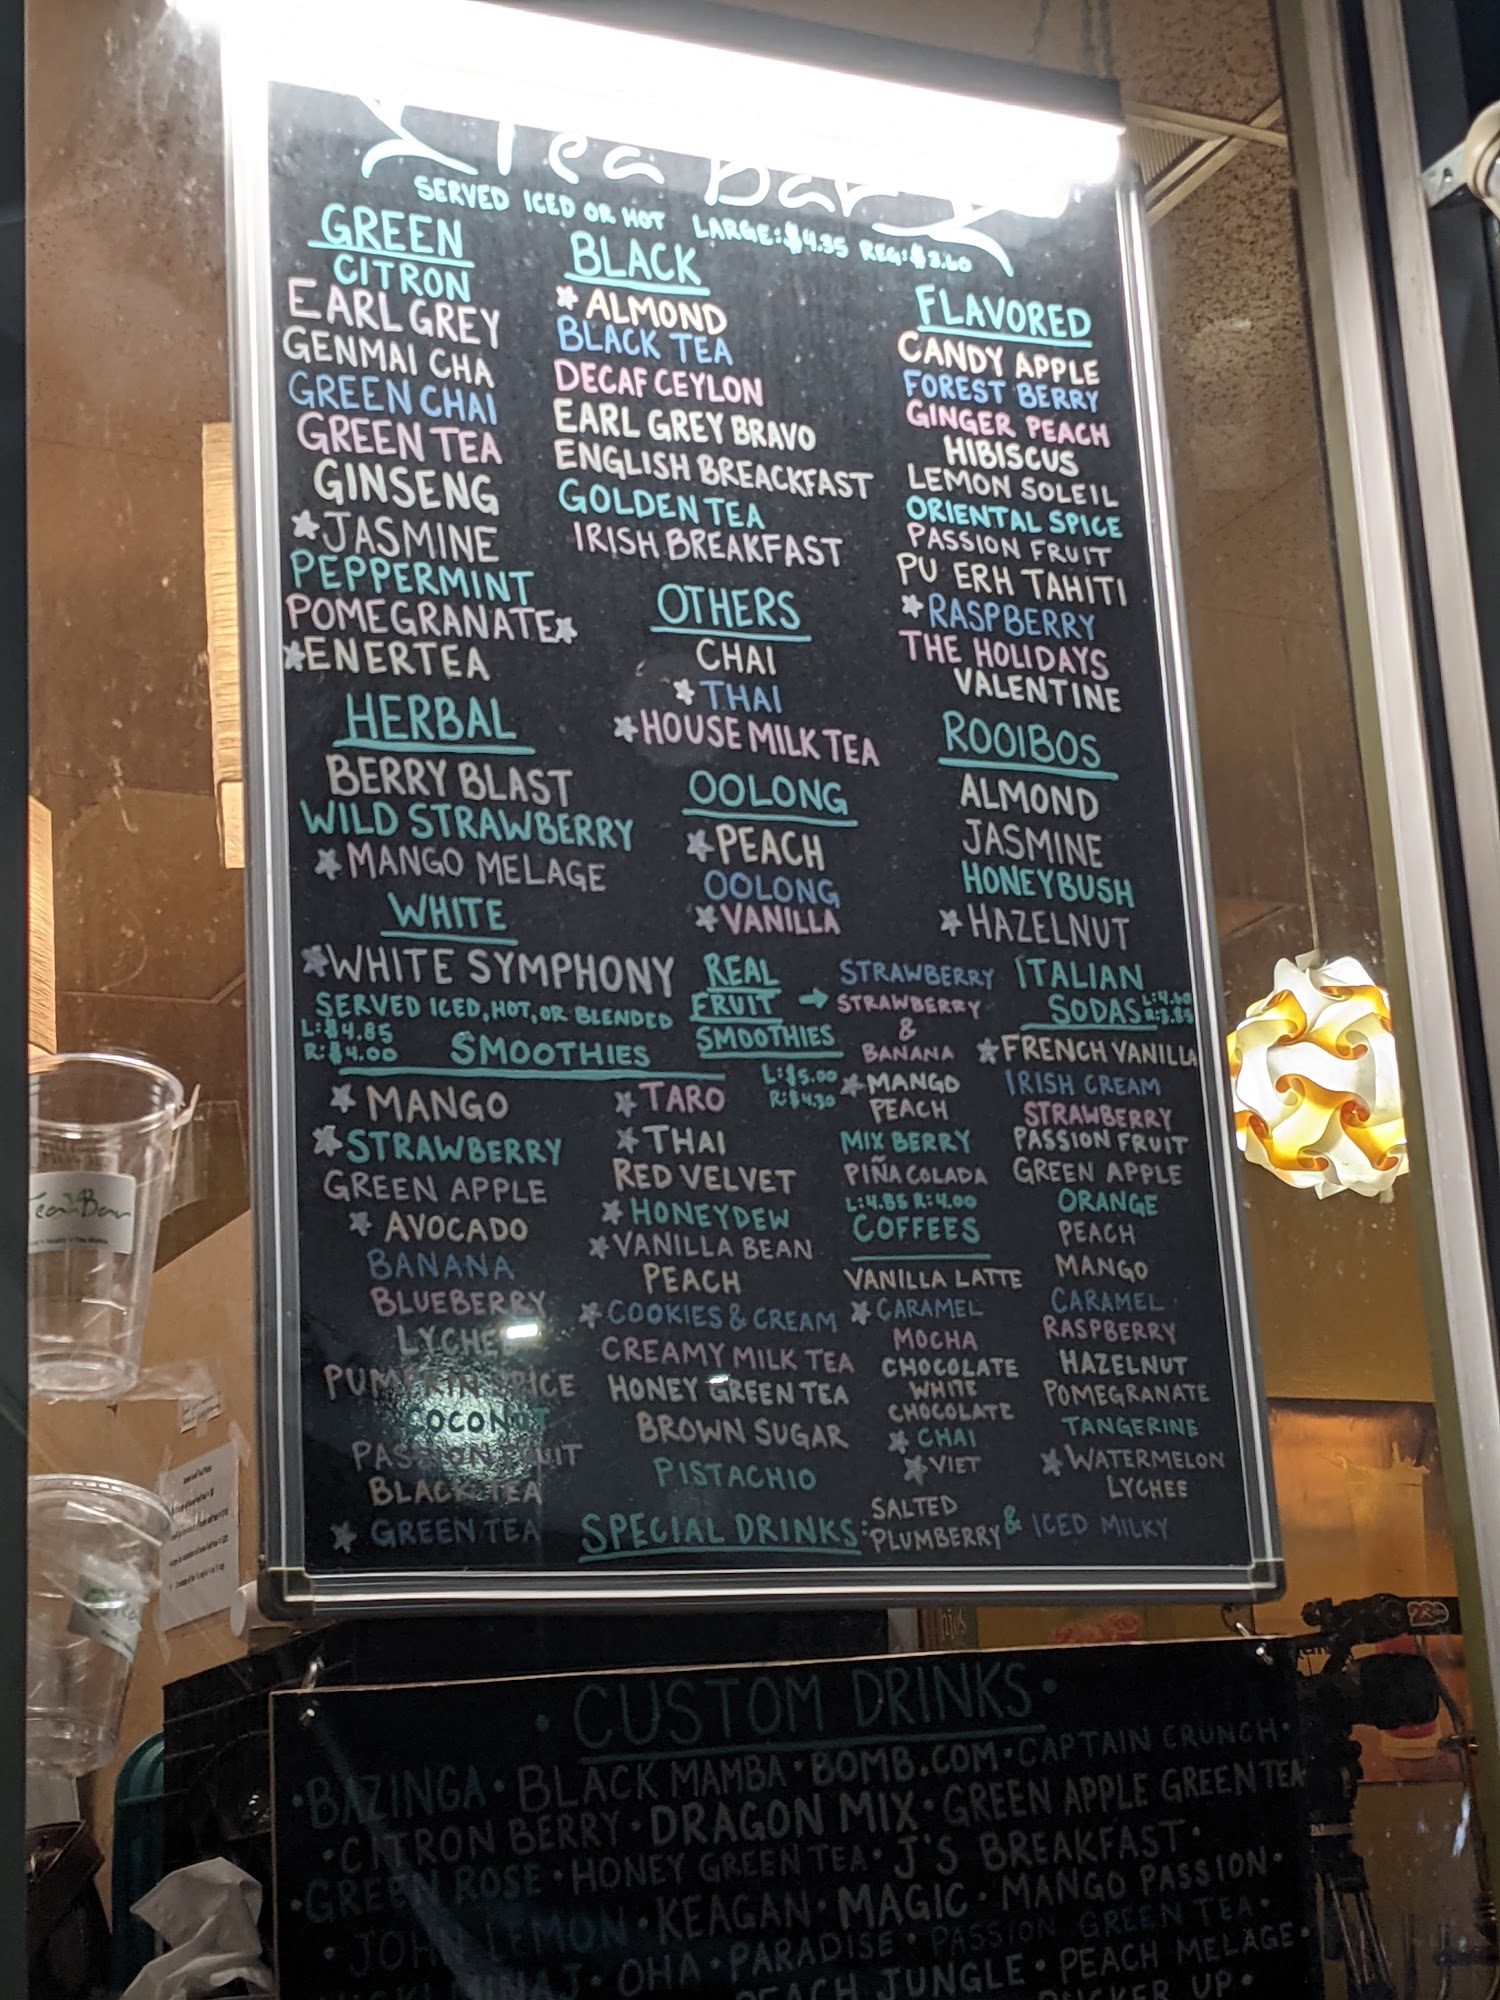 Tea Bar
SERVED ICED OR HOT LARGE:$4.35 REG:$3.60
GREEN
CITRON
EARL GREY
GENMAI CHA
GREEN CHAI
GREEN TEA
GINSENG
JASMINE
PEPPERMINT
POMEGRANATE
ENERTEA
HERBAL
BERRY BLAST
WILD STRAWBERRY
MANGO MELAGE
WHITE
WHITE SYMPHONY
BLACK
ALMOND
BLACK TEA
DECAF CEYLON
EARL GREY BRAVO
ENGLISH BREACKFAST
GOLDEN TEA
IRISH BREAKFAST
OTHERS
CHAI
THAI
HOUSE MILK TEA
OOLONG
PEACH
OOLONG
VANILLA
FLAVORED
CANDY APPLE
FOREST BERRY
GINGER PEACH
HIBISCUS
LEMON SOLEIL
ORIENTAL SPICE
PASSION FRUIT
PU ERH TAHITI
RASPBERRY
THE HOLIDAYS
VALENTINE
ROOIBOS
ALMOND
JASMINE
HONEYBUSH
HAZELNUT
SERVED ICED, HOT, OR BLENDED
L:$4.85
R:$4.00
SMOOTHIES
MANGO
STRAWBERRY
GREEN APPLE
AVOCADO
BANANA
BLUEBERRY
LYCHEE
PUMPKIN SPICE
COCONUT
PASSION FRUIT
BLACK TEA
GREEN TEA
TARO
THAI
RED VELVET
HONEYDEW
VANILLA BEAN
PEACH
COOKIES & CREAM
CREAMY MILK TEA
HONEY GREEN TEA
BROWN SUGAR
PISTACHIO
REAL
FRUIT →
SMOOTHIES
L:$5.00
R:$4.30
STRAWBERRY
STRAWBERRY
&
BANANA
MANGO
PEACH
MIX BERRY
PIÑA COLADA
L:4.85 R:4.00
COFFEES
VANILLA LATTE
CARAMEL
MOCHA
CHOCOLATE
WHITE
CHOCOLATE
CHAI
VIET
ITALIAN
SODAS
L:4.60
R:3.85
FRENCH VANILLA
IRISH CREAM
STRAWBERRY
PASSION FRUIT
GREEN APPLE
ORANGE
PEACH
MANGO
CARAMEL
RASPBERRY
HAZELNUT
POMEGRANATE
TANGERINE
WATERMELON
LYCHEE
SPECIAL DRINKS: SALTED
PLUMBERRY & ICED MILKY
Tea Bar
• CUSTOM DRINKS •
• BAZINGA • BLACK MAMBA • BOMB.COM • CAPTAIN CRUNCH •
• CITRON BERRY • DRAGON MIX • GREEN APPLE GREEN TEA
• GREEN ROSE • HONEY GREEN TEA • J'S BREAKFAST •
• JOHN LEMON • KEAGAN • MAGIC • MANGO PASSION •
OHA • PARADISE • PASSION GREEN TEA •
JUNGLE • PEACH MELAGE •
UP •